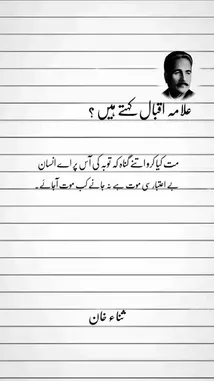 علامہ اقبال کہتے ہیں ؟
مت کیا کرو اتنے گناہ کہ توبہ کی آس پر اے انسان
بے اعتبار سی موت ہے نہ جانے کب موت آجائے۔
ثناء خان